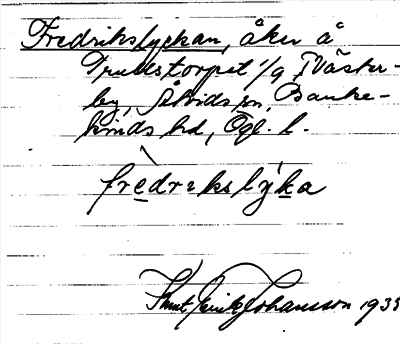 Fredrikslyckan, åker å
Trulstorpet 1/9, Väster-
by, Åtvids sn, Banke-
kinds hd, Ögl. l.
fredrekslyka
Knut Erik Johansson 193